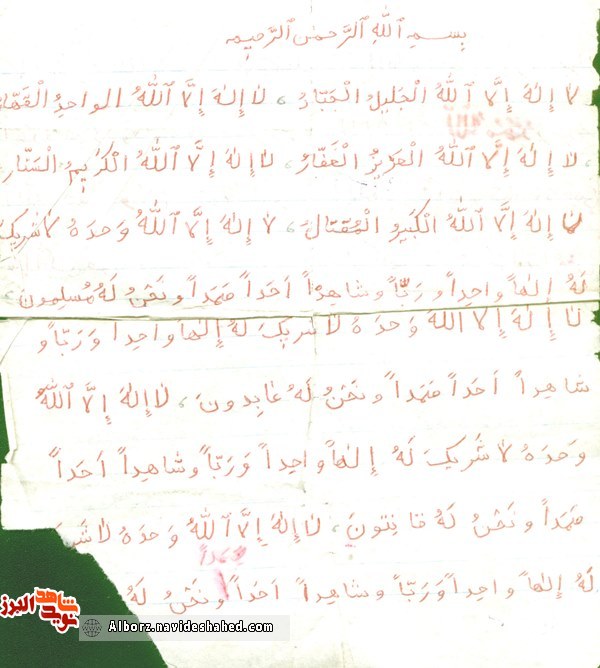 بِسمِ ٱللهِ ٱلرَّحمٰنِ ٱلرَّحیمِ
لا إِلهَ إِلَّا ٱللهُ الْجَلیلُ الْجَبّارُ، لا إِلهَ إِلَّا ٱللهُ الواحِدُ الْقَهّا
، لا إِلهَ إِلَّا ٱللهُ الْعَزیزُ الْغَفّارُ، لا إِلهَ إِلَّا ٱللهُ الْکَریمُ الْسَتّار
لا إِلهَ إِلَّا ٱللهُ الْکَبیرُ الْمُتَعالَ، لا إِلهَ إِلَّا ٱللهُ وَحدَهُ لا شَریکَ
لَهُ إِلهاً واحِداً وَ رَبّاً وَ شاهِداً اَحَداً صَمَداً وَ نَحْنُ لَهُ مُسلِمونَ،
لا إِلهَ إِلَّا اللهُ وَحدَهُ لا شَریکَ لَهُ إِلهاً واحِداً وَ رَبّاً وَ
شاهِداً اَحَداً صَمَداً وَ نَحْنُ لَهُ عابِدونَ، لا إِلهَ إِلَّا ٱللهُ
وَحدَهُ لا شَریکَ لَهُ إِلهاً واحِداً وَ رَبّاً وَ شاهِداً اَحَداً
صَمَداً وَ نَحْنُ لَهُ قانِتونَ، لا إِلهَ إِلَّا ٱللهُ وَحدَهُ لا شَر
صمداً
لَهُ إِلهاً واحِداً وَ رَبّاً وَ شاهِداً اَحَداً وَ نَحْنُ لَهُ
نوید شاهد البرز
Alborz.navideshahed.com